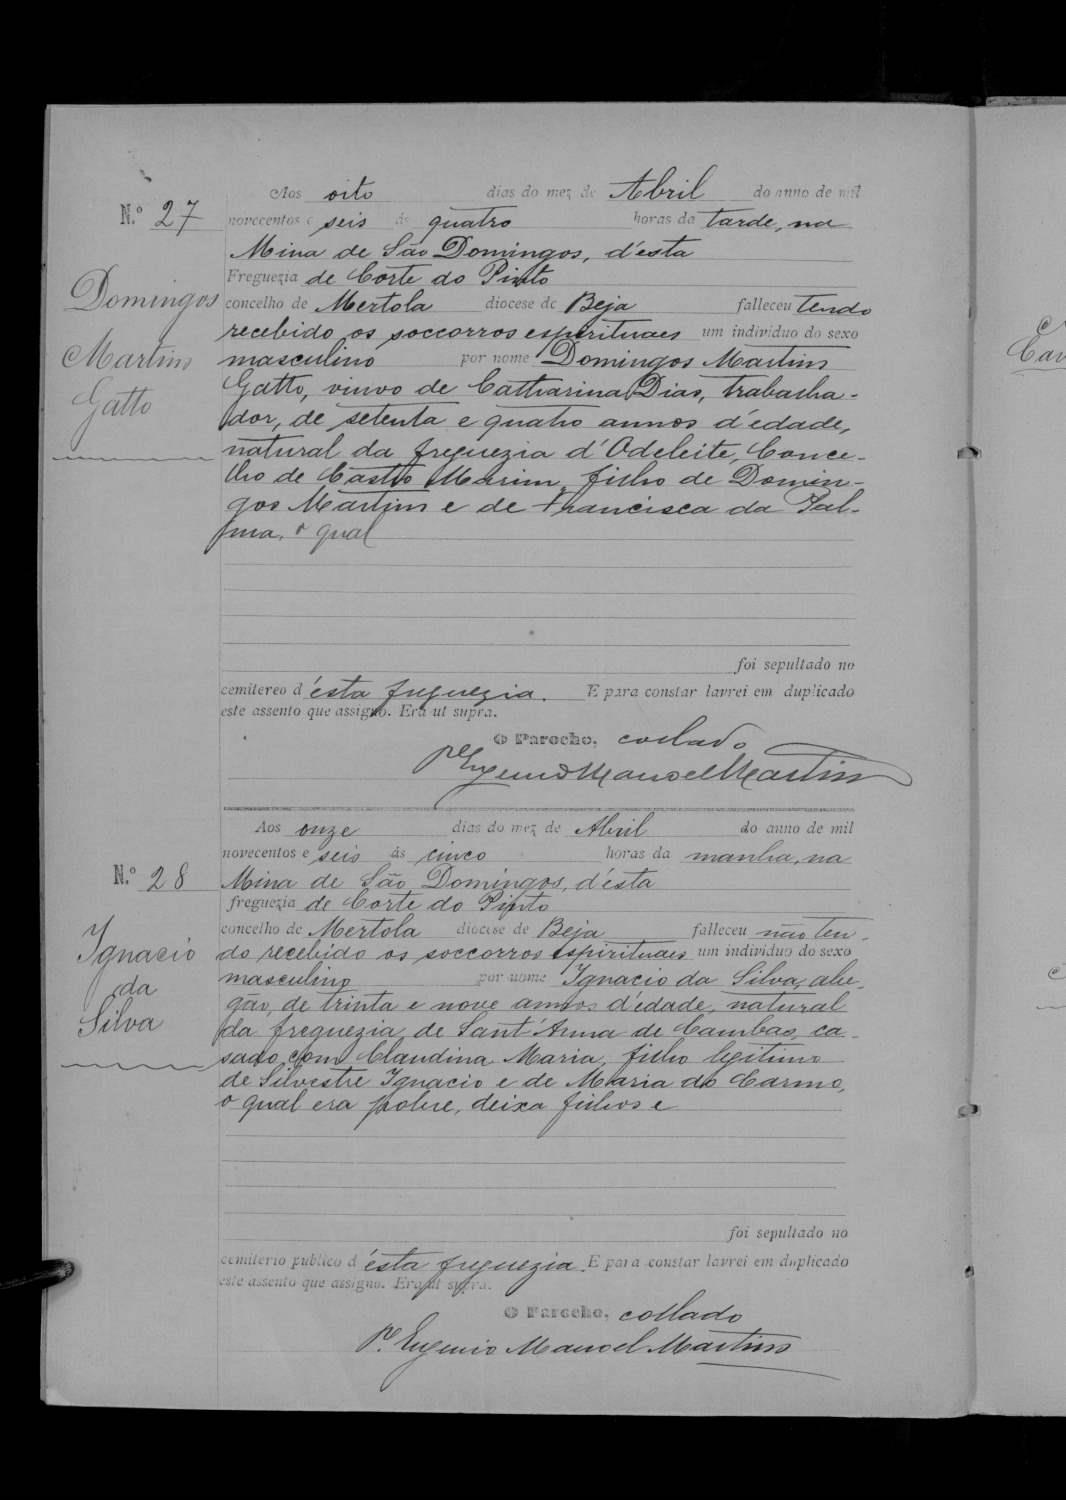 N.º 27
Domingos
Martins
Gatto
Aos oito dias do mez de Abril do anno de mil
novecentos e seis ás quatro horas da tarde, na
Mina de São Domingos, d'ésta
Freguezia de Corte do Pinto
concelho de Mertola diocese de Beja falleceu tendo
recebido os soccorros espirituaes um individuo do sexo
masculino por nome Domingos Martins
Gatto, viuvo de Catharina Dias, trabalha-
dor, de setenta e quatro annos d'édade,
natural da freguezia d'Odeleite, Conce-
lho de Castro Marim, filho de Domin-
gos Martins e de Francisca da Pal-
ma, o qual
foi sepultado no
cemitereo d'ésta freguezia. E para constar lavrei em duplicado
este assento que assigno. Era ut supra.
O Parocho, collado
Pe Eugenio Manoel Martins
N.º 28
Ignacio
da
Silva
Aos onze dias do mez de Abril do anno de mil
novecentos e seis ás cinco horas da manhã, na
Mina de São Domingos, d'ésta
freguezia de Corte do Pinto
concelho de Mertola diocese de Beja falleceu não ten-
do recebido os soccorros espirituaes um individuo do sexo
masculino por nome Ignacio da Silva, ale-
gão, de trinta e nove annos d'édade, natural
da freguezia de Sant'Anna de Cambas, ca-
sado com Claudina Maria, filho legitimo
de Silvestre Ignacio e de Maria do Carmo,
o qual era pobre, deixa filhos e
foi sepultado no
cemiterio publico d'ésta freguezia. E para constar lavrei em duplicado
este assento que assigno. Era ut supra.
O Parocho, collado
Pe. Eugenio Manoel Martins